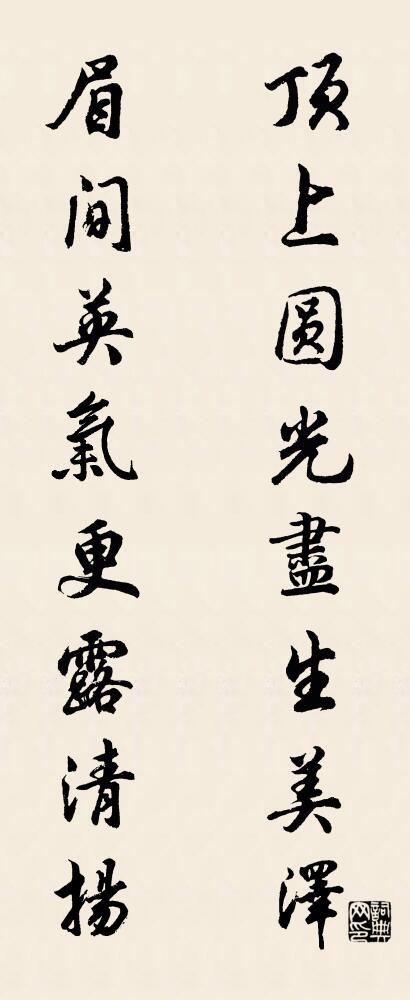 顶上圓光盡生美澤
眉间英氣更露清揚
詞典网印